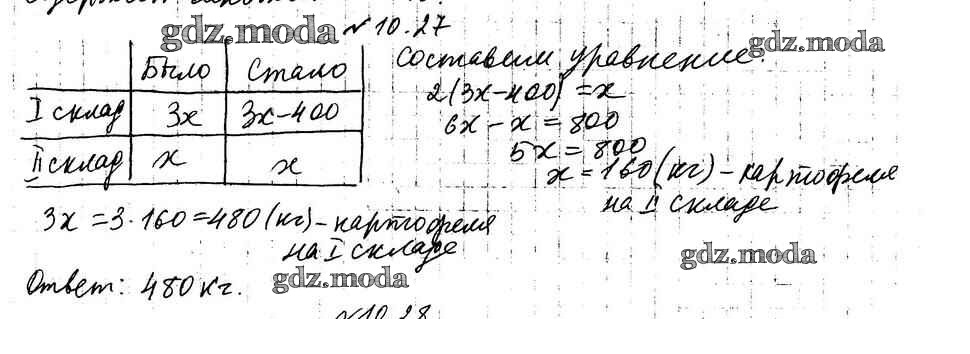 № 10.27
Было Стало
I склад 3x 3x-400
II склад x x
Составим уравнение
2(3x-400)=x
6x-x=800
5x=800
x=160(кг)-картофеля
на II складе
3x=3·160=480(кг)-картофеля
на I складе
Ответ: 480 кг.
№10.28
gdz.moda
gdz.moda
gdz.moda
gdz.moda